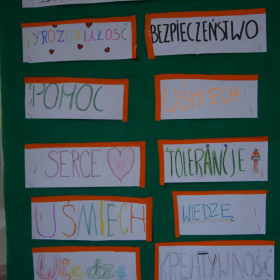 WYROZUMIAŁOŚĆ
BEZPIECZEŃSTWO
POMOC
UŚMIECH
SERCE
TOLERANCJE
UŚMIECH
WIEDZĘ
Wiedzę
KREATYWNOŚĆ